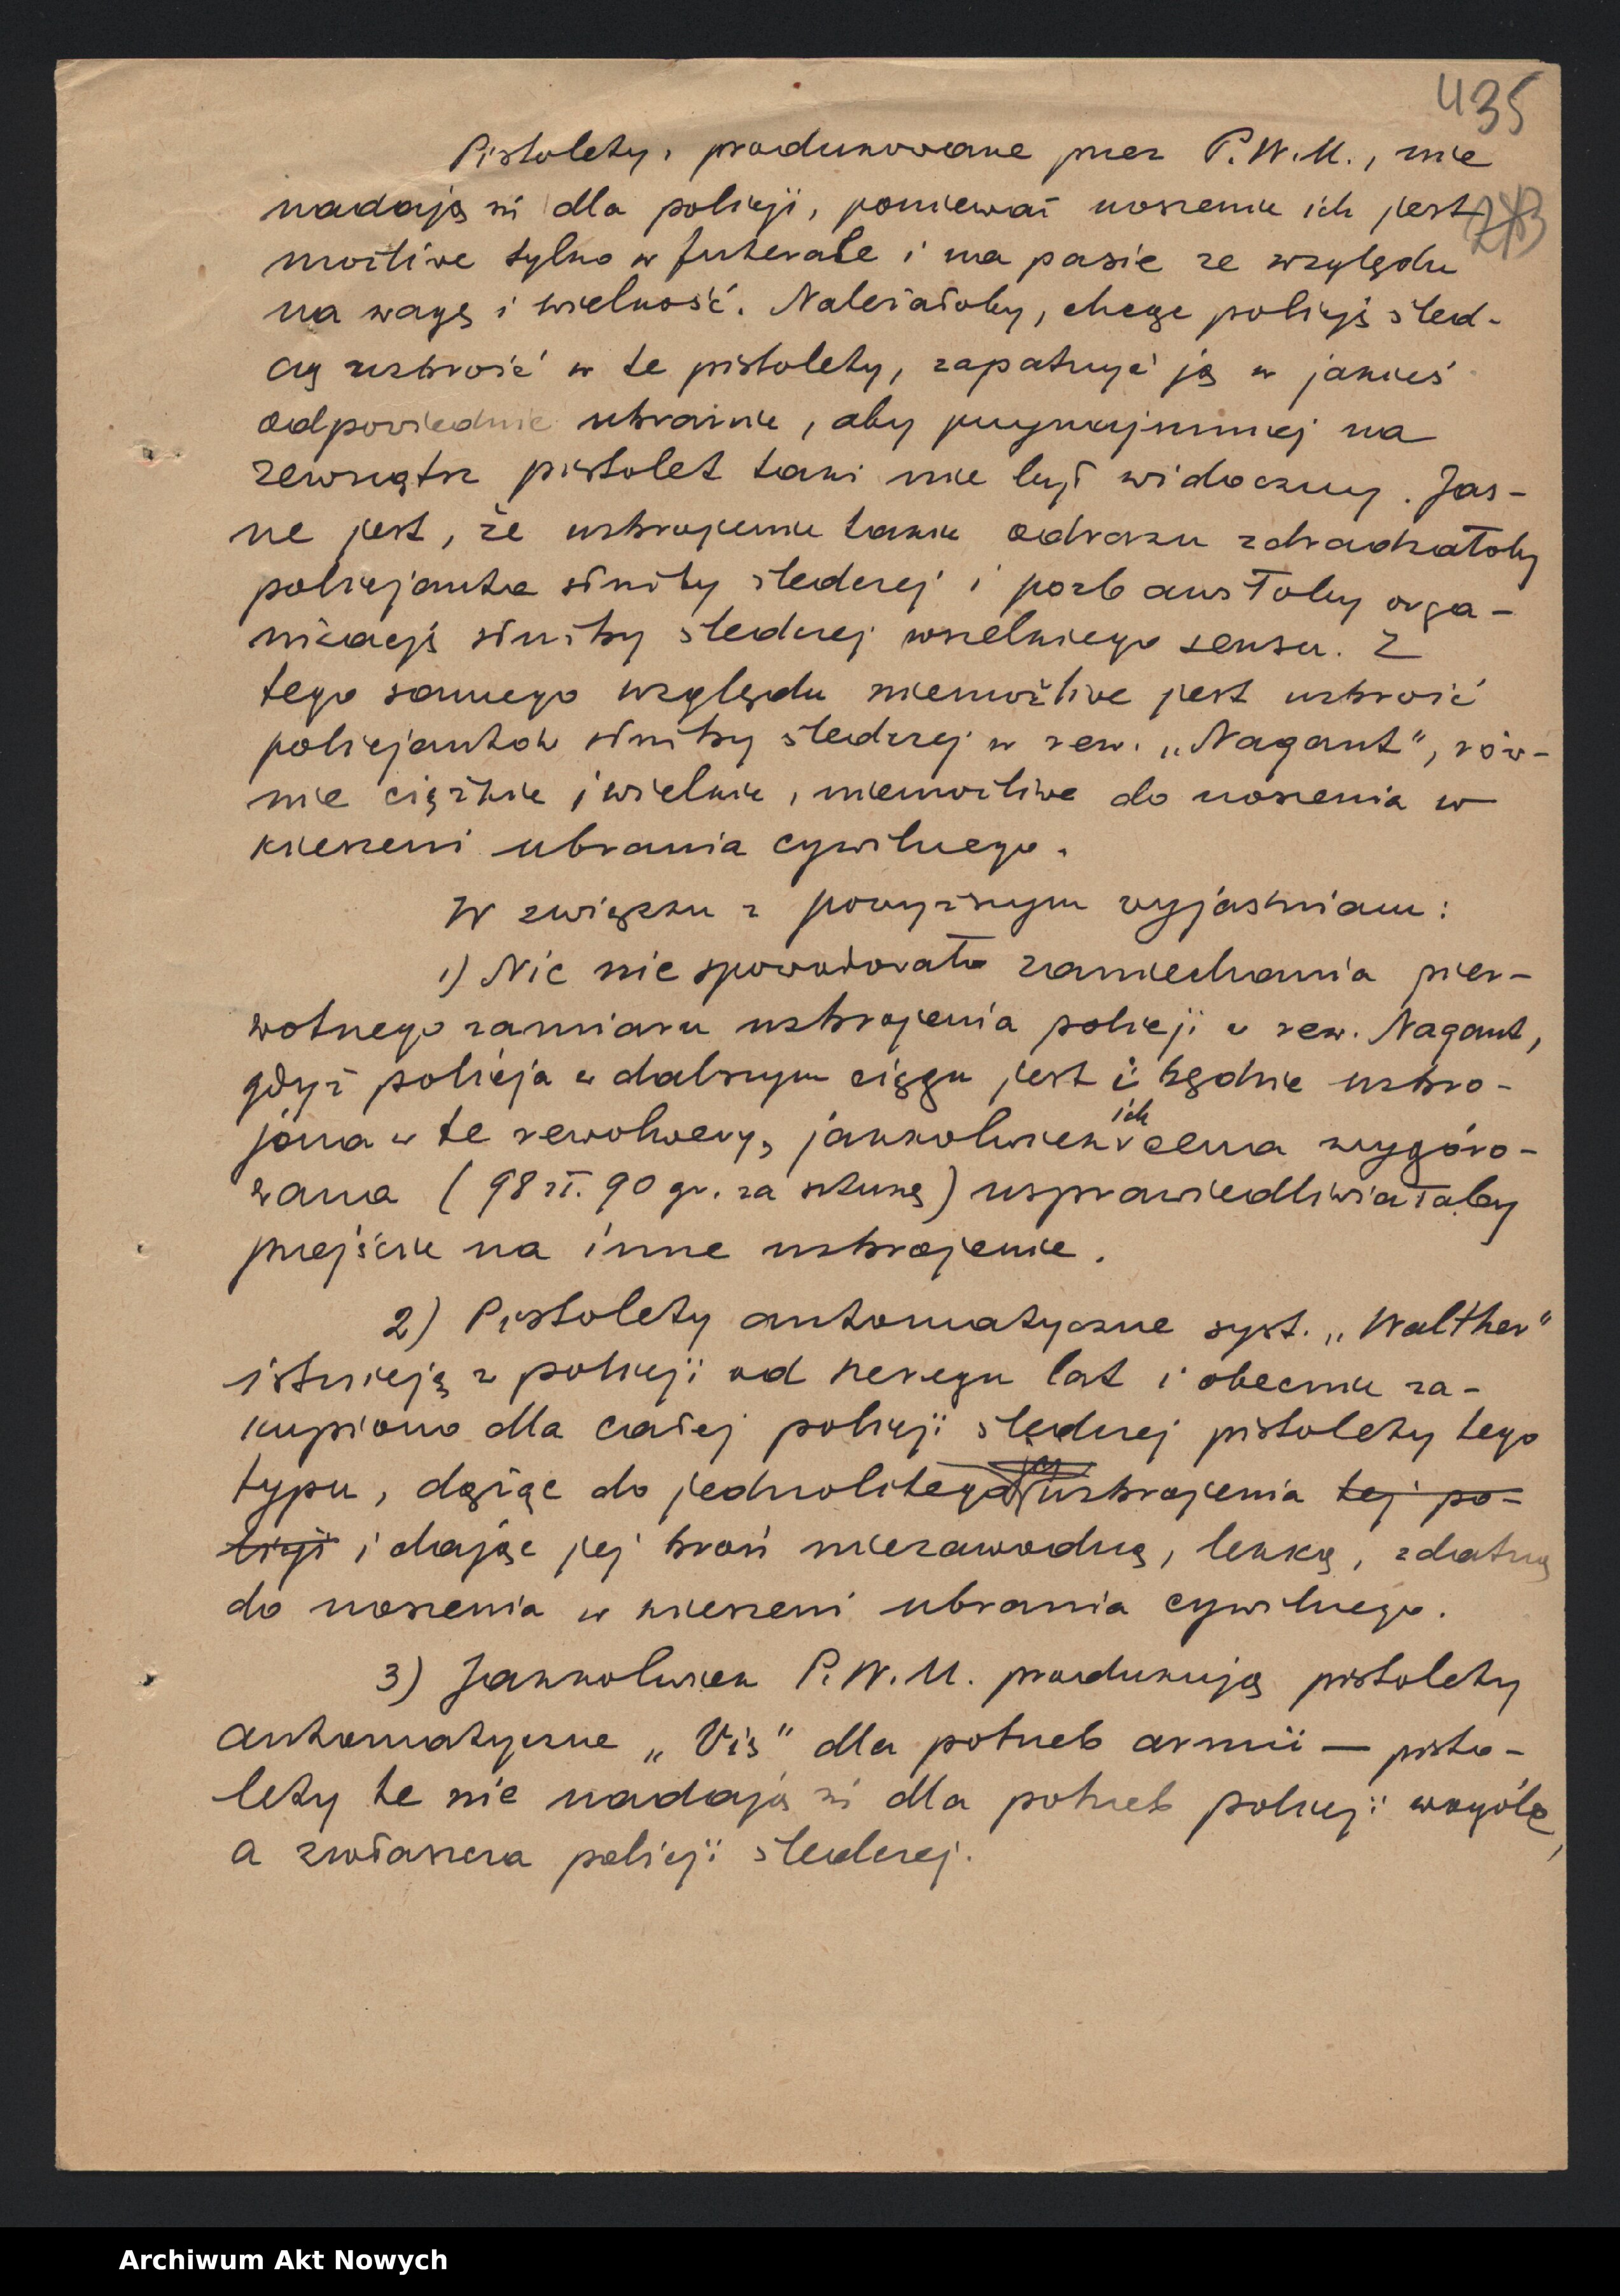 435
Pistolety, produkowane przez P.W.U., nie
nadają się dla policji, ponieważ noszenie ich jest
możliwe tylko w futerale i na pasie ze względu
na wagę i wielkość. Należałoby, chcąc policję śled-
czą uzbroić w te pistolety, zapatrzyć ją w jakieś
odpowiednie ubranie, aby przynajmniej na
zewnątrz pistolet taki nie był widoczny. Jas-
ne jest, że uzbrojenie takie odrazu zdradzałoby
policjanta służby śledczej i pozbawiałoby orga-
nizację służby śledczej wszelkiego sensu. Z
tego samego względu niemożliwe jest uzbroić
policjantów służby śledczej w rew. „Nagant", rów-
nie ciężkie i wielkie, niemożliwe do noszenia w
kieszeni ubrania cywilnego.
W związku z powyższym wyjaśniam:
1) Nic nie spowodowało zaniechania pier-
wotnego zamiaru uzbrojenia policji w rew. Nagant,
gdyż policja w dalszym ciągu jest i będzie uzbro-
jona w te rewolwery, jakkolwiek ich cena wygóro-
wana (98 zł. 90 gr. za sztukę) usprawiedliwiałaby
przejście na inne uzbrojenie.
2) Pistolety automatyczne syst. „Walther"
istnieją w policji od szeregu lat i obecnie za-
kupiono dla całej policji śledczej pistolety tego
typu, dążąc do jednolitego uzbrojenia tej po-
licji i dając jej broń niezawodną, lekką, zdatną
do noszenia w kieszeni ubrania cywilnego.
3) Jakkolwiek P.W.U. produkują pistolety
automatyczne „Vis" dla potrzeb armii — pisto-
lety te nie nadają się dla potrzeb policji wogóle,
a zwłaszcza policji śledczej.
Archiwum Akt Nowych